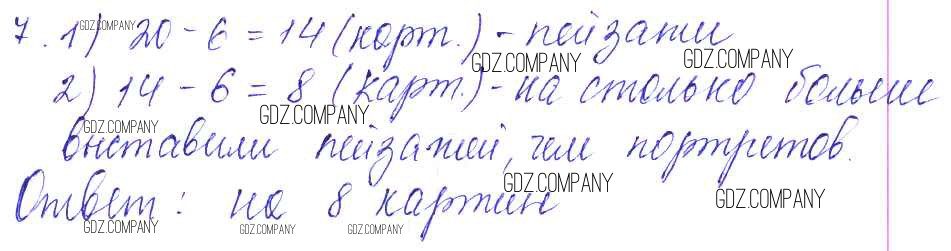 7. 1) 20 - 6 = 14 (карт.) - пейзажи
2) 14 - 6 = 8 (карт.) - на столько больше
выставили пейзажей, чем портретов.
Ответ: на 8 картин
GDZ.COMPANY
GDZ.COMPANY
GDZ.COMPANY
GDZ.COMPANY
GDZ.COMPANY
GDZ.COMPANY
GDZ.COMPANY
GDZ.COMPANY
GDZ.COMPANY
GDZ.COMPANY